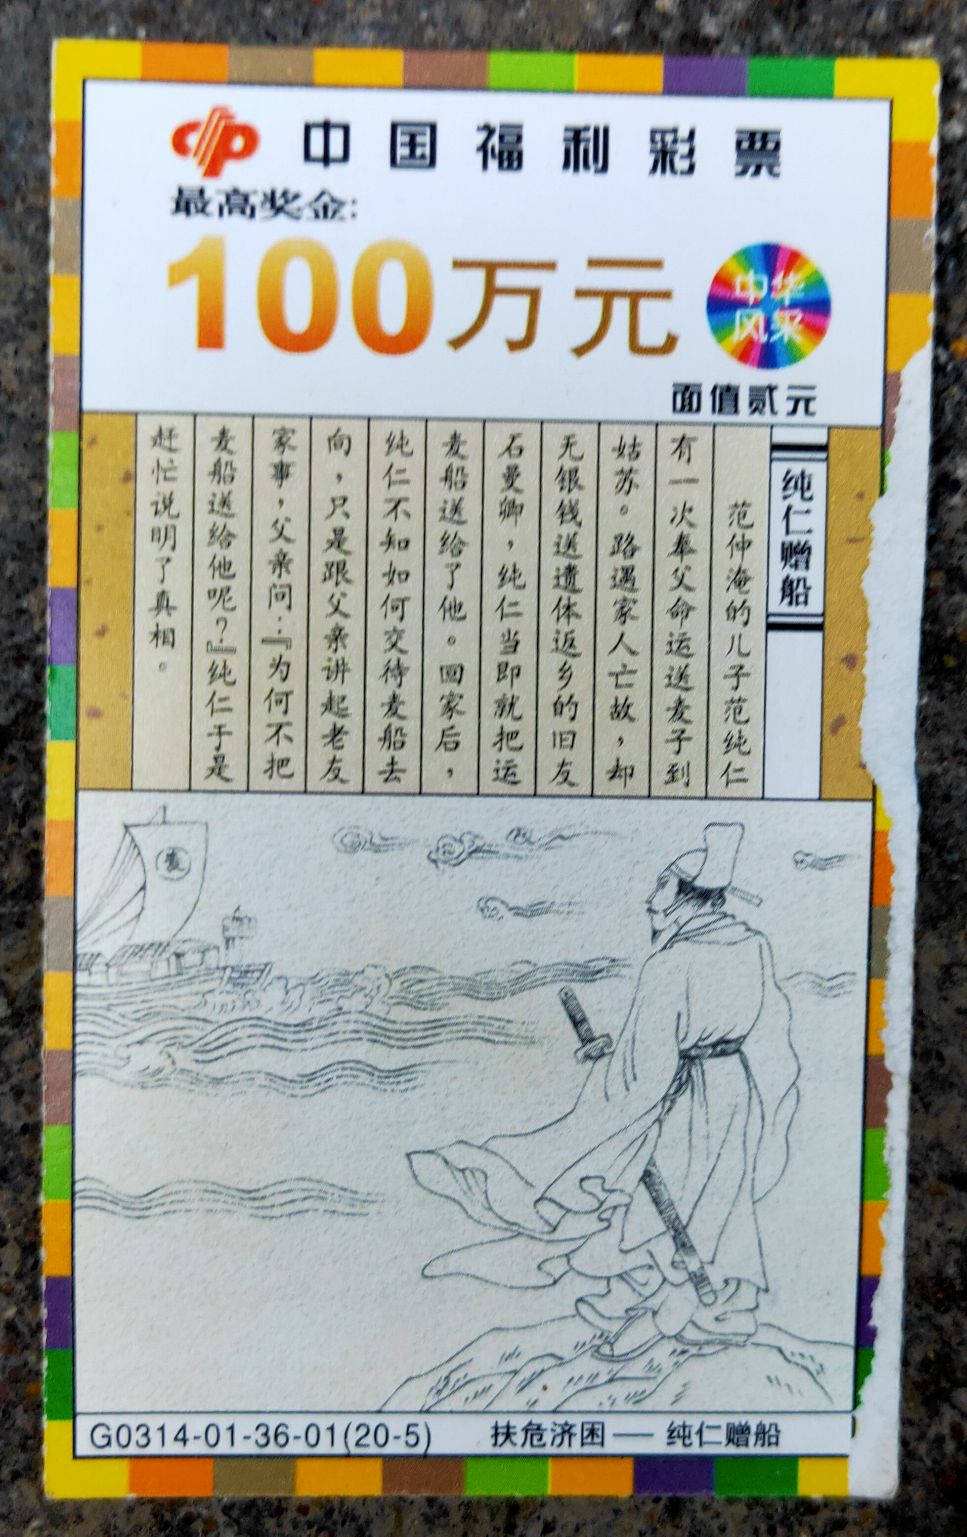 中国福利彩票
最高奖金:
100万元
中华
风采
面值贰元
纯仁赠船
范仲淹的儿子范纯仁
有一次奉父命运送麦子到
姑苏。路遇家人亡故，却
无银钱送遗体返乡的旧友
石曼卿，纯仁当即就把运
麦船送给了他。回家后，
纯仁不知如何交待麦船去
向，只是跟父亲讲起老友
家事，父亲问：『为何不把
麦船送给他呢？』纯仁于是
赶忙说明了真相。
麦
G0314-01-36-01(20-5) 扶危济困—纯仁赠船